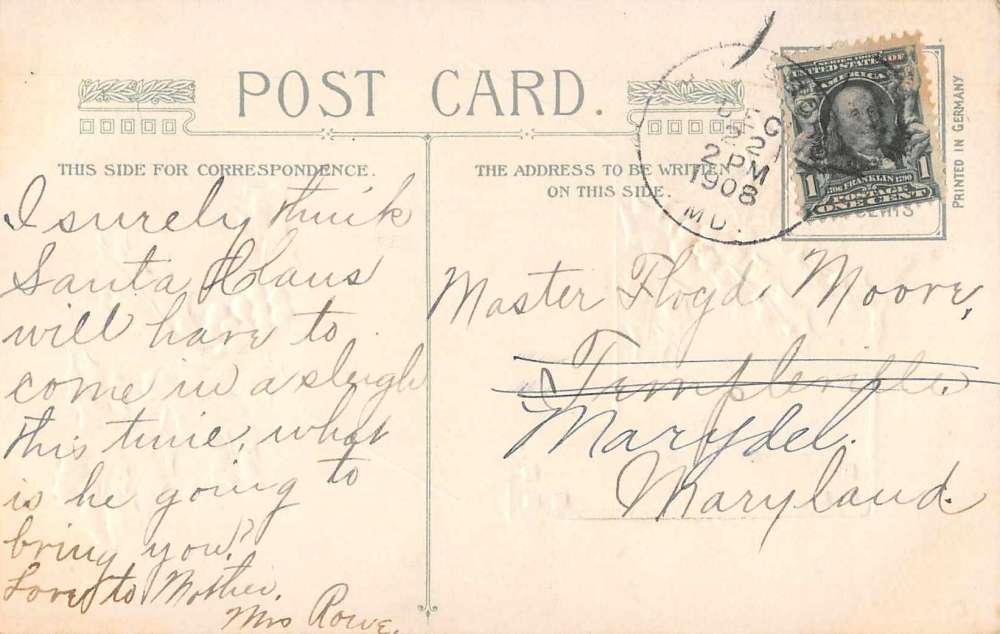 POST CARD.
THIS SIDE FOR CORRESPONDENCE.
I surely think
Santa Claus
will have to
come in a sleigh
this time, what
is he going to
bring you?
Love to Mother.
Mrs Rowe.
THE ADDRESS TO BE WRITTEN
ON THIS SIDE.
DEC
21
2 PM
1908
MD.
SERIES 1902
UNITED STATES OF
AMERICA
1 1
1706 FRANKLIN 1790
POSTAGE
ONE CENT
CENTS
PRINTED IN GERMANY
Master Floyd Moore,
Templeville.
Marydel.
Maryland.